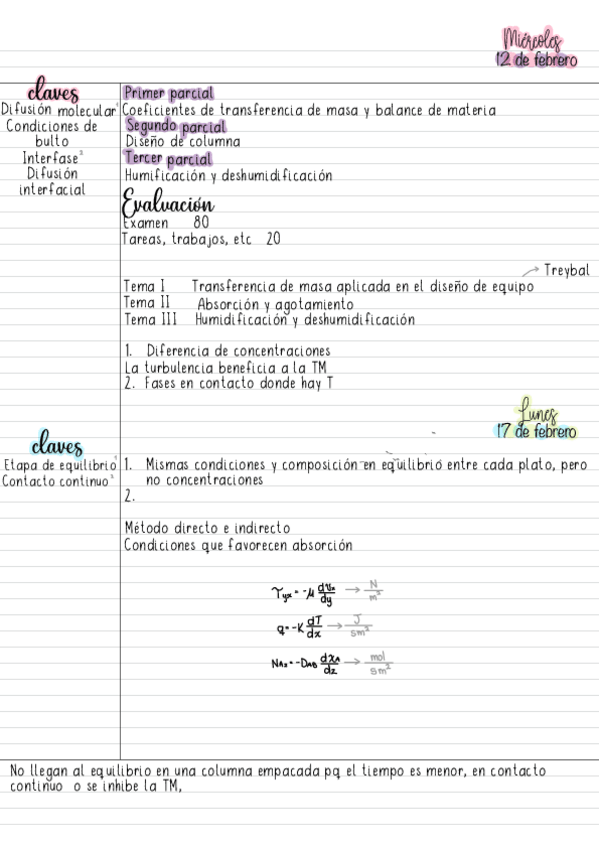 Miércoles
12 de febrero
claves
Difusión molecular¹
Condiciones de
bulto
Interfase²
Difusión
interfacial
Primer parcial
Coeficientes de transferencia de masa y balance de materia
Segundo parcial
Diseño de columna
Tercer parcial
Humificación y deshumidificación
Evaluación
Examen 80
Tareas, trabajos, etc 20
→ Treybal
Tema I Transferencia de masa aplicada en el diseño de equipo
Tema II Absorción y agotamiento
Tema III Humidificación y deshumidificación
1. Diferencia de concentraciones
La turbulencia beneficia a la TM
2. Fases en contacto donde hay T
Lunes
17 de febrero
claves
Etapa de equilibrio¹
Contacto continuo²
1. Mismas condiciones y composición en equilibrio entre cada plato, pero
no concentraciones
2.
Método directo e indirecto
Condiciones que favorecen absorción
τyx = -μ dvx/dy → N/m²
q = -K dT/dx → J/sm²
NAz = -DAB dxA/dz → mol/sm²
No llegan al equilibrio en una columna empacada pq el tiempo es menor, en contacto
continuo o se inhibe la TM,